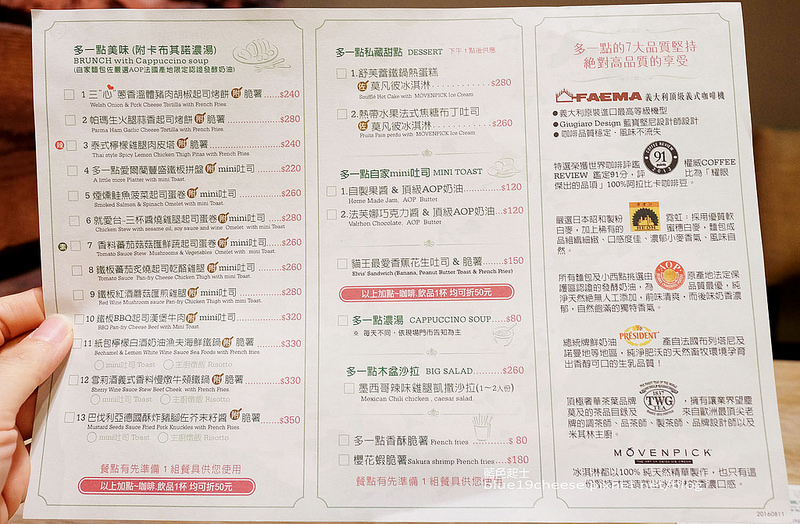 多一點美味 (附卡布其諾濃湯)
BRUNCH with Cappuccino soup
(自家麵包佐嚴選AOP法國產地限定認證發酵奶油)
1 三"心"蔥香溫體豬肉胡椒起司烤餅 附 脆薯......$240
Welsh Onion & Pork Cheese Tortilla with French Fries
2 帕瑪生火腿蒜香起司烤餅 附 脆薯......$280
Parma Ham Garlic Cheese Tortilla with French Fries
辣 3 泰式檸檬雞腿肉皮塔 附 脆薯......$240
Thai style Spicy Lemon Chicken Thigh Pitas with French Fries
4 多一點愛爾蘭豐盛鐵板拼盤 附 mini吐司......$220
A little more Platter with mini Toast
5 煙燻鮭魚菠菜起司蛋卷 附 mini吐司......$260
Smoked Salmon & Spinach Omelet with mini Toast
6 就愛台-三杯醬燒雞腿起司蛋卷 附 mini吐司......$280
Chicken Stew with sesame oil, soy sauce and wine Omelet with mini Toast
素 7 香料蕃茄菇菇匯鮮蔬起司蛋卷 附 mini吐司......$260
Tomato Sauce Stew Mushrooms & Vegetables Omelet with mini Toast
8 鐵板蕃茄炙燒起司乾酪雞腿 附 mini吐司......$260
Tomato Sauce Pan-fry Cheese Chicken Thigh with mini Toast
9 鐵板紅酒蘑菇匯煎雞腿 附 mini吐司......$280
Red Wine Mushroom sauce Pan-fry Chicken Thigh with mini Toast
10 鐵板BBQ起司漢堡牛肉 附 mini吐司......$320
BBQ Pan-fry Cheese Beef with Mini Toast
11 紙包檸檬白酒奶油漁夫海鮮鐵鍋 附 脆薯......$330
Bechamel & Lemon White Wine Sauce Sea Foods with French fries
mini吐司 Toast 主廚燉飯 Risotto
12 雪莉酒義式香料慢燉牛頰鐵鍋 附 脆薯......$330
Sherry Wine Sauce Stew Beef Cheek with French Fries
mini吐司 Toast 主廚燉飯 Risotto
13 巴伐利亞德國酥炸豬腳佐芥末籽醬 附 脆薯......$350
Mustard Seeds Sauce Fried Pork Knuckles with French Fries
mini吐司 Toast 主廚燉飯 Risotto
餐點有先準備 1 組餐具供您使用
以上加點~咖啡.飲品1杯 均可折50元
多一點私藏甜點 DESSERT 下午1點後供應
1.舒芙蕾鐵鍋熱蛋糕
佐 莫凡彼冰淇淋......$280
Soufflé Hot Cake with MÖVENPICK Ice Cream
2.熱帶水果法式焦糖布丁吐司
佐 莫凡彼冰淇淋......$260
Fruits Pain perdu with MÖVENPICK Ice Cream
多一點自家mini吐司 MINI TOAST
1.自製果醬 & 頂級AOP奶油......$120
Home Made Jam, AOP Butter
2.法芙娜巧克力醬 & 頂級AOP奶油...$120
Valrhon Chocolate, AOP Butter
貓王最愛香蕉花生吐司 & 脆薯......$150
Elvis' Sandwich(Banana, Peanut Butter Toast & French Fries)
以上加點~咖啡.飲品1杯 均可折50元
多一點濃湯 CAPPUCCINO SOUP......$80
※ 每天不同，依現場門市告知為主
多一點木盆沙拉 BIG SALAD......$260
墨西哥辣味雞腿凱撒沙拉(1～2人份)
Mexican Chili chicken, caesar salad
多一點香酥脆薯 French fries......$ 80
櫻花蝦脆薯 Sakura shrimp French fries...$180
餐點有先準備 1 組餐具供您使用
多一點的7大品質堅持
絕對高品質的享受
FAEMA 義大利頂級義式咖啡機
● 義大利原裝進口最高等級機型
● Giugiaro Design 藍寶堅尼設計師設計
● 咖啡品質穩定，風味不流失
特選榮獲世界咖啡評鑑 91 權威COFFEE
REVIEW 鑑定91分，評 比為「耀眼
傑出的品項」100%阿拉比卡咖啡豆。
嚴選日本昭和製粉 霓虹，採用優質軟
白麥，加上稀有的 蜜穗白麥，麵包成
品組織細緻、口感度佳、濃郁小麥香氣，風味自
然。
所有麵包及小西點挑選由 AOP 原產地法定保
護區認證的發酵奶油。為 品質最優，純
淨天然絕無人工添加，前味清爽，而後味奶香濃
郁，自然飽滿的獨特香氣。
總統牌鮮奶油 PRÉSIDENT 產自法國布列塔尼及
諾曼地等地區，純淨肥沃的天然畜牧環境孕育
出香醇可口的生乳品質！
頂極奢華茶葉品牌 TWG TEA ，擁有讓業界望塵
莫及的茶品目錄及 來自歐洲最頂尖老
牌的調茶師、品茶師、製茶師、品牌設計師以及
米其林主廚。
MÖVENPICK
冰淇淋都以100% 純天然精華製作，也只有這
藍色起士
blue19cheese.pixnet.net/blog
20160811